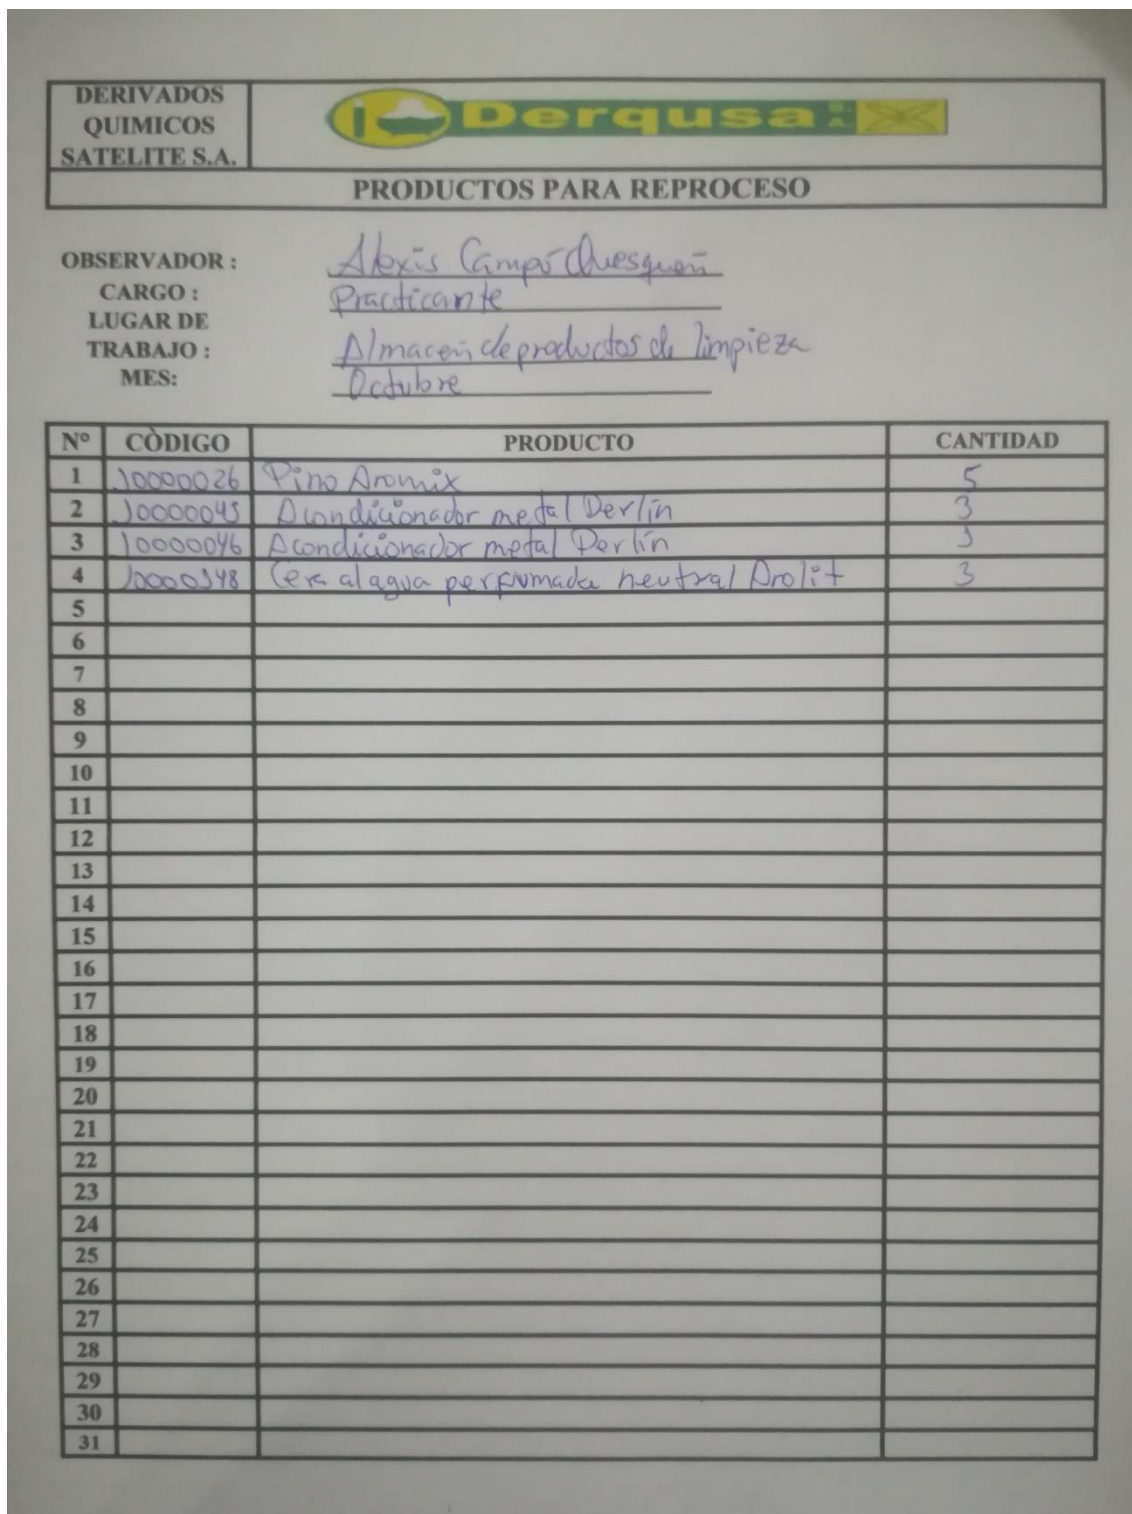 DERIVADOS
QUIMICOS
SATELITE S.A.
Derqusa S.A.
PRODUCTOS PARA REPROCESO
OBSERVADOR : Alexis Campó
CARGO : Practicante
LUGAR DE
TRABAJO : Almacén de productos de limpieza
MES: Octubre
N° CÒDIGO PRODUCTO CANTIDAD
1 10000026 Pino Aromix 5
2 10000045 Acondicionador metal Derlín 3
3 10000046 Acondicionador metal Derlín
4 10000148 Cera al agua perfumada neutral Arolit 3
5
6
7
8
9
10
11
12
13
14
15
16
17
18
19
20
21
22
23
24
25
26
27
28
29
30
31